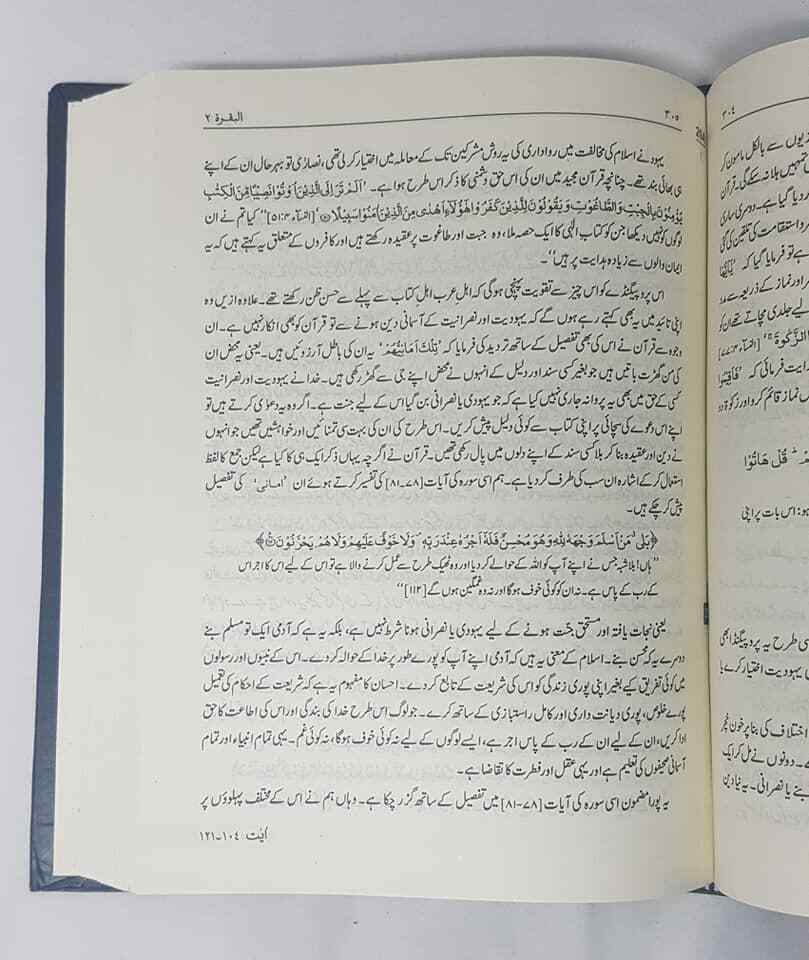 البقرة ۲
۳۰۵
یہود نے اسلام کی مخالفت میں رواداری کی یہ روش مشرکین تک کے معاملہ میں اختیار کر لی تھی، نصاریٰ تو بہر حال ان کے اپنے
ہی بھائی بند تھے۔ چنانچہ قرآن مجید میں ان کی اس حق دشمنی کا ذکر اس طرح ہوا ہے۔ ’اَلَمْ تَرَ اِلَى الَّذِيْنَ اُوْتُوْا نَصِيْبًا مِّنَ الْكِتٰبِ
يُؤْمِنُوْنَ بِالْجِبْتِ وَالطَّاغُوْتِ وَيَقُوْلُوْنَ لِلَّذِيْنَ كَفَرُوْا هٰٓؤُلَآءِ اَهْدٰى مِنَ الَّذِيْنَ اٰمَنُوْا سَبِيْلًا‘ [النساء ۴: ۵۱] ’’کیا تم نے ان
لوگوں کو نہیں دیکھا جن کو کتاب الٰہی کا ایک حصہ ملا، وہ جبت اور طاغوت پر عقیدہ رکھتے ہیں اور کافروں کے متعلق یہ کہتے ہیں کہ یہ
ایمان والوں سے زیادہ ہدایت پر ہیں‘‘۔
اس پروپیگنڈے کو اس چیز سے تقویت پہنچی ہوگی کہ اہل عرب اہل کتاب سے پہلے سے حسن ظن رکھتے تھے۔ علاوہ ازیں وہ
اپنی تائید میں یہ بھی کہتے رہے ہوں گے کہ یہودیت اور نصرانیت کے آسمانی دین ہونے سے تو قرآن کو بھی انکار نہیں ہے۔ ان
وجوہ سے قرآن نے اس کی بھی تفصیل کے ساتھ تردید کی فرمایا کہ ’تِلْكَ اَمَانِيُّهُمْ‘ یہ ان کی باطل آرزوئیں ہیں۔ یعنی یہ محض ان
کی من گھڑت باتیں ہیں جو بغیر کسی سند اور دلیل کے انہوں نے محض اپنے جی سے گھڑ رکھی ہیں۔ خدا نے یہودیت اور نصرانیت
کسی کے حق میں بھی یہ پروانہ جاری نہیں کیا ہے کہ جو یہودی یا نصرانی بن گیا اس کے لیے جنت ہے۔ اگر وہ یہ دعویٰ کرتے ہیں تو
اپنے اس دعوے کی سچائی پر اپنی کتاب سے کوئی دلیل پیش کریں۔ اس طرح کی ان کی بہت سی تمنائیں اور خواہشیں تھیں جو انہوں
نے دین اور عقیدہ بنا کر بلا کسی سند کے اپنے دلوں میں پال رکھی تھیں۔ قرآن نے اگرچہ یہاں ذکر ایک ہی کا کیا ہے لیکن جمع کا لفظ
استعمال کر کے اشارہ ان سب کی طرف کر دیا ہے۔ ہم اسی سورہ کی آیات [۷۸-۸۱] کی تفسیر کرتے ہوئے ان ’امانی‘ کی تفصیل
پیش کر چکے ہیں۔
﴿بَلٰى مَنْ اَسْلَمَ وَجْهَهٗ لِلّٰهِ وَهُوَ مُحْسِنٌ فَلَهٗٓ اَجْرُهٗ عِنْدَ رَبِّهٖ وَلَا خَوْفٌ عَلَيْهِمْ وَلَا هُمْ يَحْزَنُوْنَ﴾
’’ہاں! بلاشبہ جس نے اپنے آپ کو اللہ کے حوالے کر دیا اور وہ ٹھیک طرح سے عمل کرنے والا ہے تو اس کے لیے اس کا اجر اس
کے رب کے پاس ہے۔ نہ ان کو کوئی خوف ہوگا اور نہ وہ غمگین ہوں گے [۱۱۲]‘‘
یعنی نجات یافتہ اور مستحق جنت ہونے کے لیے یہودی یا نصرانی ہونا شرط نہیں ہے، بلکہ یہ ہے کہ آدمی ایک تو مسلم بنے
دوسرے یہ کہ محسن بنے۔ اسلام کے معنی یہ ہیں کہ آدمی اپنے آپ کو پورے طور پر خدا کے حوالہ کر دے۔ اس کے نبیوں اور رسولوں
میں کوئی تفریق کیے بغیر اپنی پوری زندگی کو اس کی شریعت کے تابع کر دے۔ احسان کا مفہوم یہ ہے کہ شریعت کے احکام کی تعمیل
پورے خلوص، پوری دیانت داری اور کامل راستبازی کے ساتھ کرے۔ جو لوگ اس طرح خدا کی بندگی اور اس کی اطاعت کا حق
ادا کریں، ان کے لیے ان کے رب کے پاس اجر ہے، ایسے لوگوں کے لیے نہ کوئی خوف ہوگا، نہ کوئی غم۔ یہی تمام انبیاء اور تمام
آسمانی صحیفوں کی تعلیم ہے اور یہی عقل اور فطرت کا تقاضا ہے۔
یہ پورا مضمون اسی سورہ کی آیات [۷۸-۸۱] میں تفصیل کے ساتھ گزر چکا ہے۔ وہاں ہم نے اس کے مختلف پہلوؤں پر
آیت ۱۰۴-۱۲۱
۳۰۴
یوں سے بالکل مامون کر
تمہیں ہلا نہ سکے گی۔ قرآن
ر دیا گیا ہے۔ دوسری ساری
ر و استقامت کی تلقین کی گئی
ہے تو فرمایا گیا کہ
اور نماز کے ذریعہ سے مدد
لیے جلدی مچاتے تھے ان کو
الزَّكٰوةَ‘ [النساء ۴: ۷۷]
ہدایت فرمائی کہ ’فَاَقِيْمُوا
نماز قائم کرو اور زکوٰۃ دو
قُلْ هَاتُوْا
ہو: اس بات پر اپنی
سی طرح یہ پروپیگنڈا بھی
یہودیت اختیار کرے یا
اختلاف کی بنا پر خون خچر
دونوں نے مل کر ایک
بنے یا نصرانی۔ یہ نیا دین